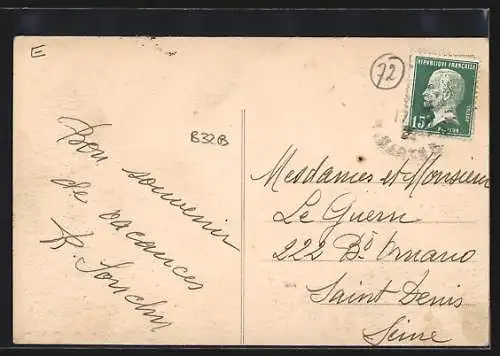 E
B32B
72
REPUBLIQUE FRANÇAISE
15
Bon souvenir
de vacances
Mesdames et Monsieur
Le Guern
222 Bd Ornano
Saint Denis
Seine